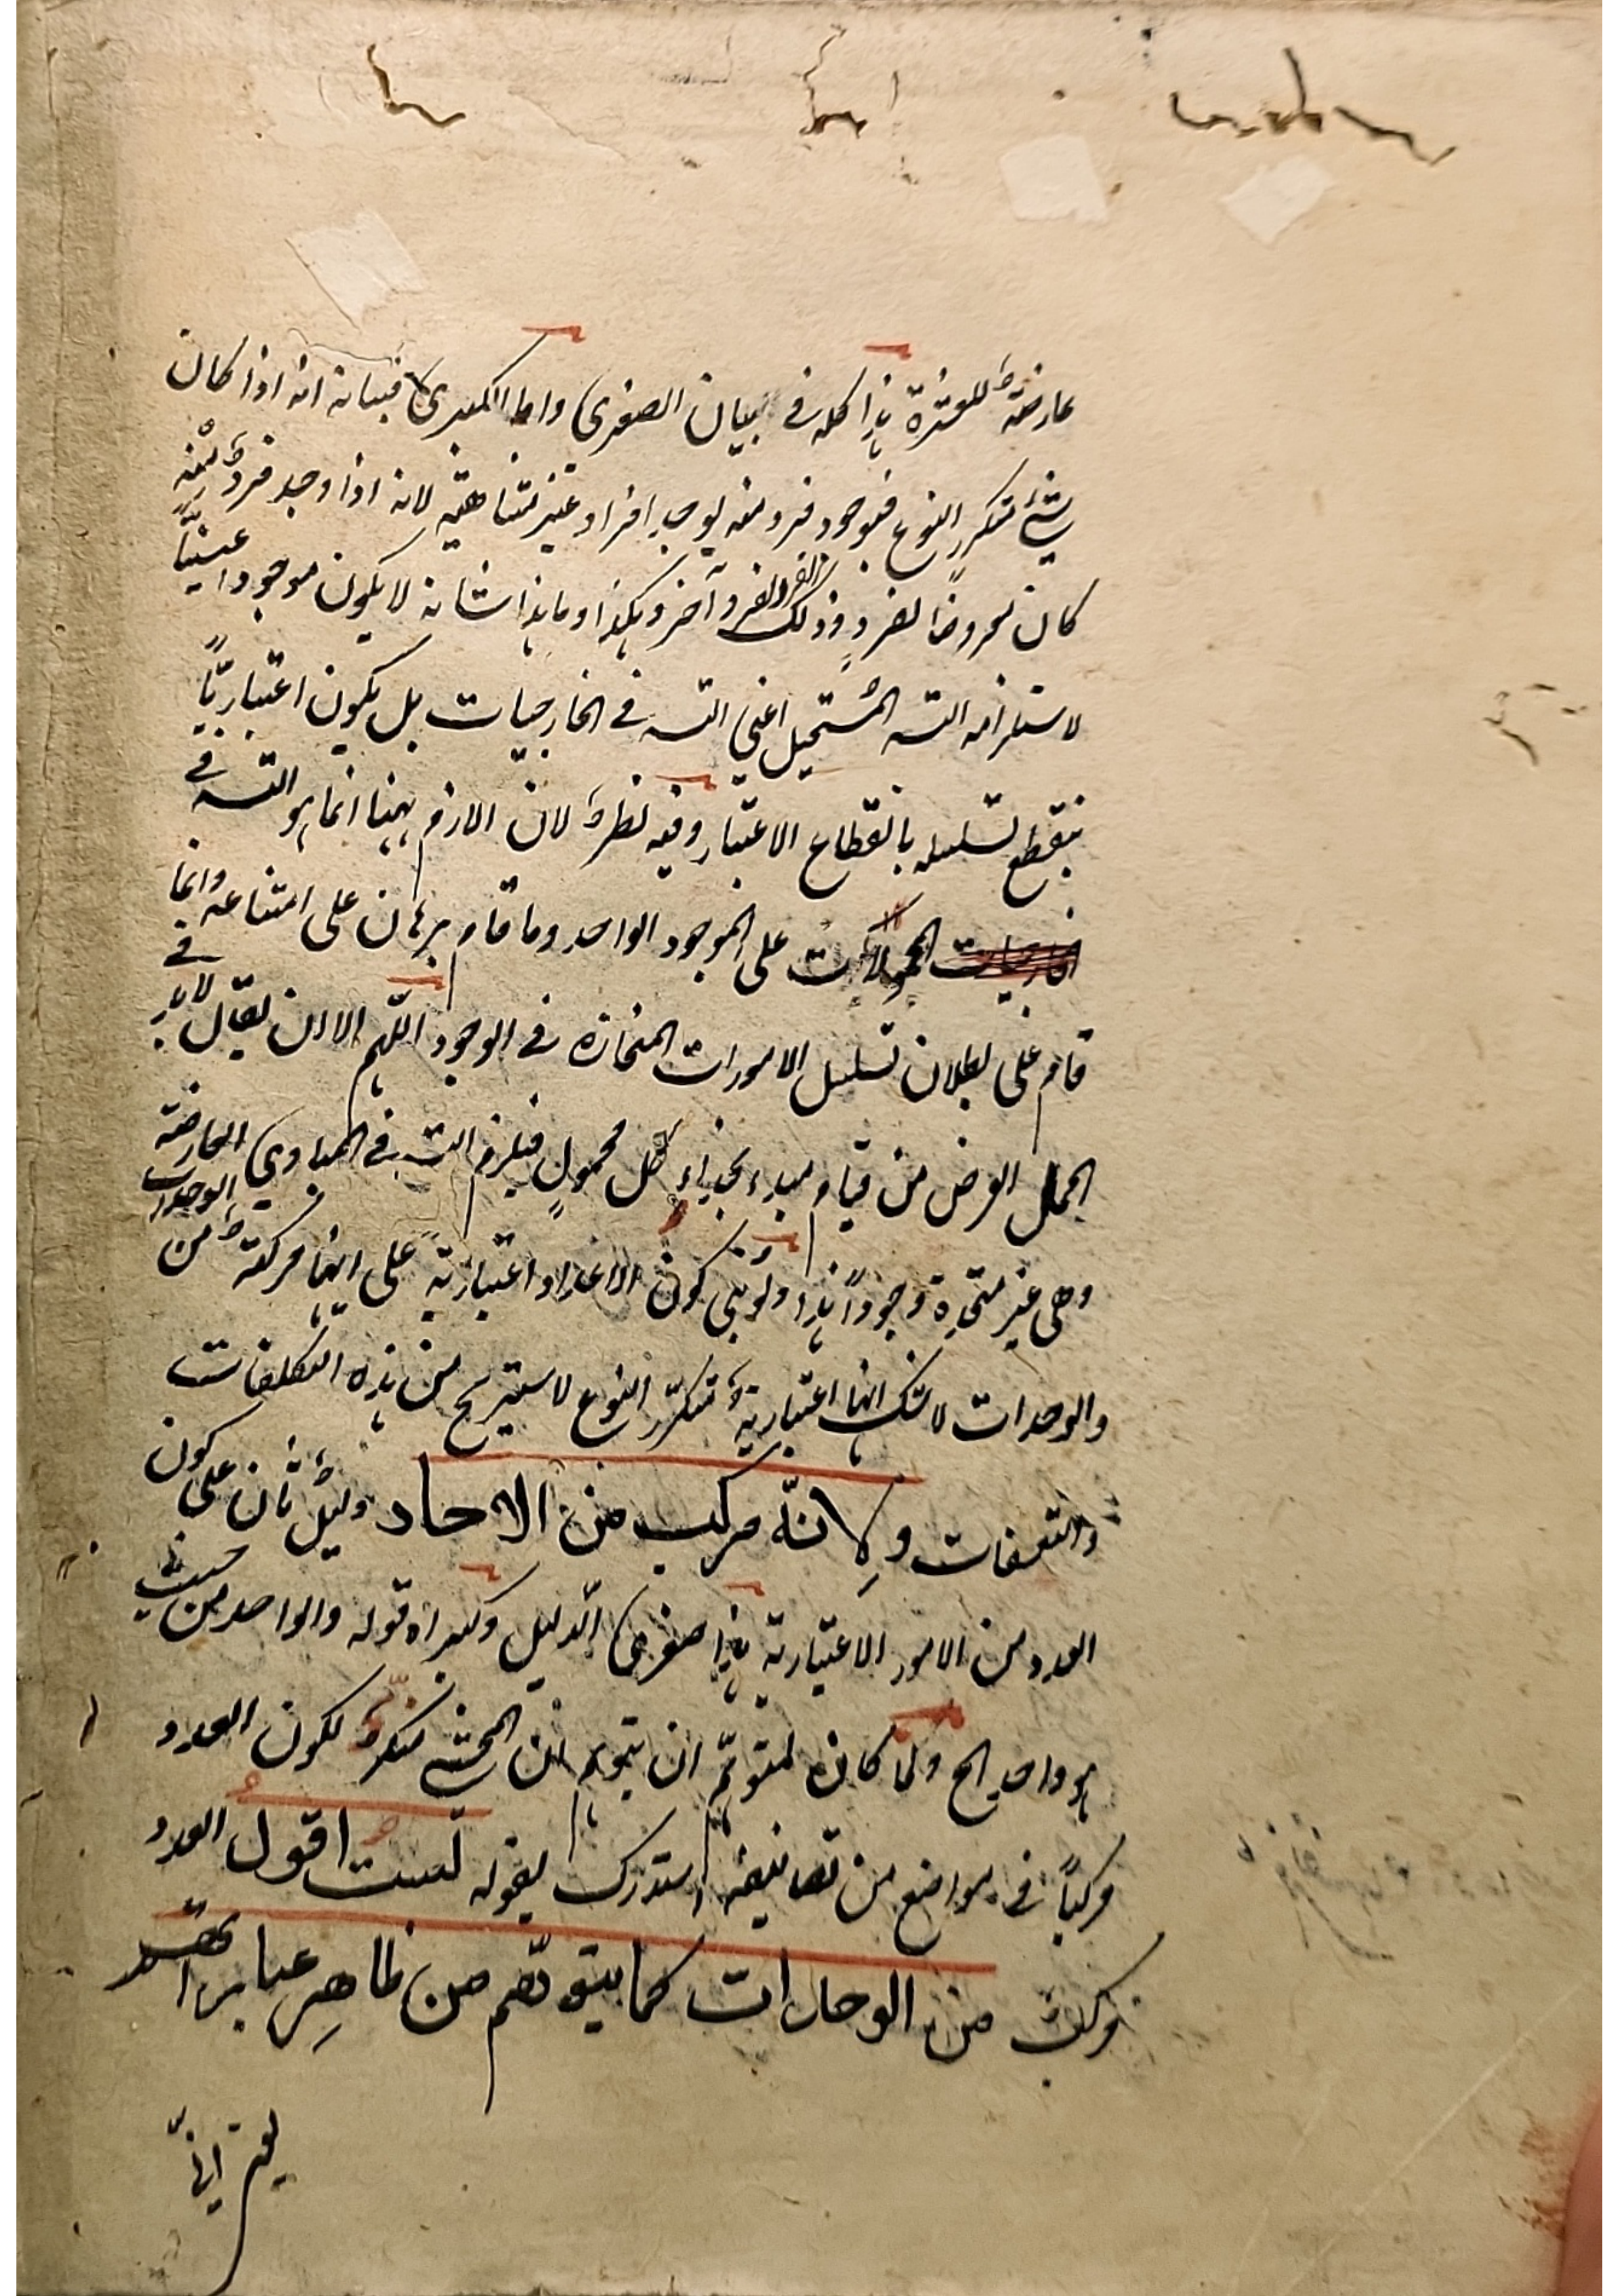 عارضةٌ للعشرة هذا كله فى بيان الصغرى واما الكبرى فبيانه انه اذا كان
شئ متكرر النوع فبوجود فرد منه يوجد افراد غير متناهية لانه اذا وجد فردٌ منه
كان معروضا لفردٍ وذلك الفرد لفرد آخر وهكذا وما هذا شانه لا يكون موجودا عينيًّا
لاستلزامه التسـ المستحيل اعنى التسـ فى الخارجيات بل يكون اعتباريًّا
ينقطع تسلسله بانقطاع الاعتبار وفيه نظرٌ لان اللازم ههنا انما هو التسـ فى
المحمولات على الموجود الواحد وما قام برهان على امتناعه وانما
قام على بطلان تسلسل الامورات المنحازة فى الوجود اللهم الا ان يقال لا بد فى
الحمل العرضى من قيام مبدء بحذاء كل محمولٍ فيلزم التسـ فى المبادى العارضة
وهى غير متحدة وجودًا هذا ولو بنى كون الاعداد اعتباريةً على انها مركبةٌ من الوحدات
والوحدات لا شك انها اعتباريةٌ متكرر النوع لاستريح من هذه التكلفات
والتعسفات ولِانّه مركب من الاحاد دليلٌ ثان على كون
العدد من الامور الاعتبارية هذا صغرى الدليل وكبراه قوله والواحد من حيث
هو واحد الخ ولما كان لمتوهّم ان يتوهم ان المحشى منكرٌ لكون العدد
مركبًا فى مواضع من تصانيفه استدرك بقوله لست اقول العدد
مركبٌ من الوحدات كما يتوهم من ظاهِر عباراتهم